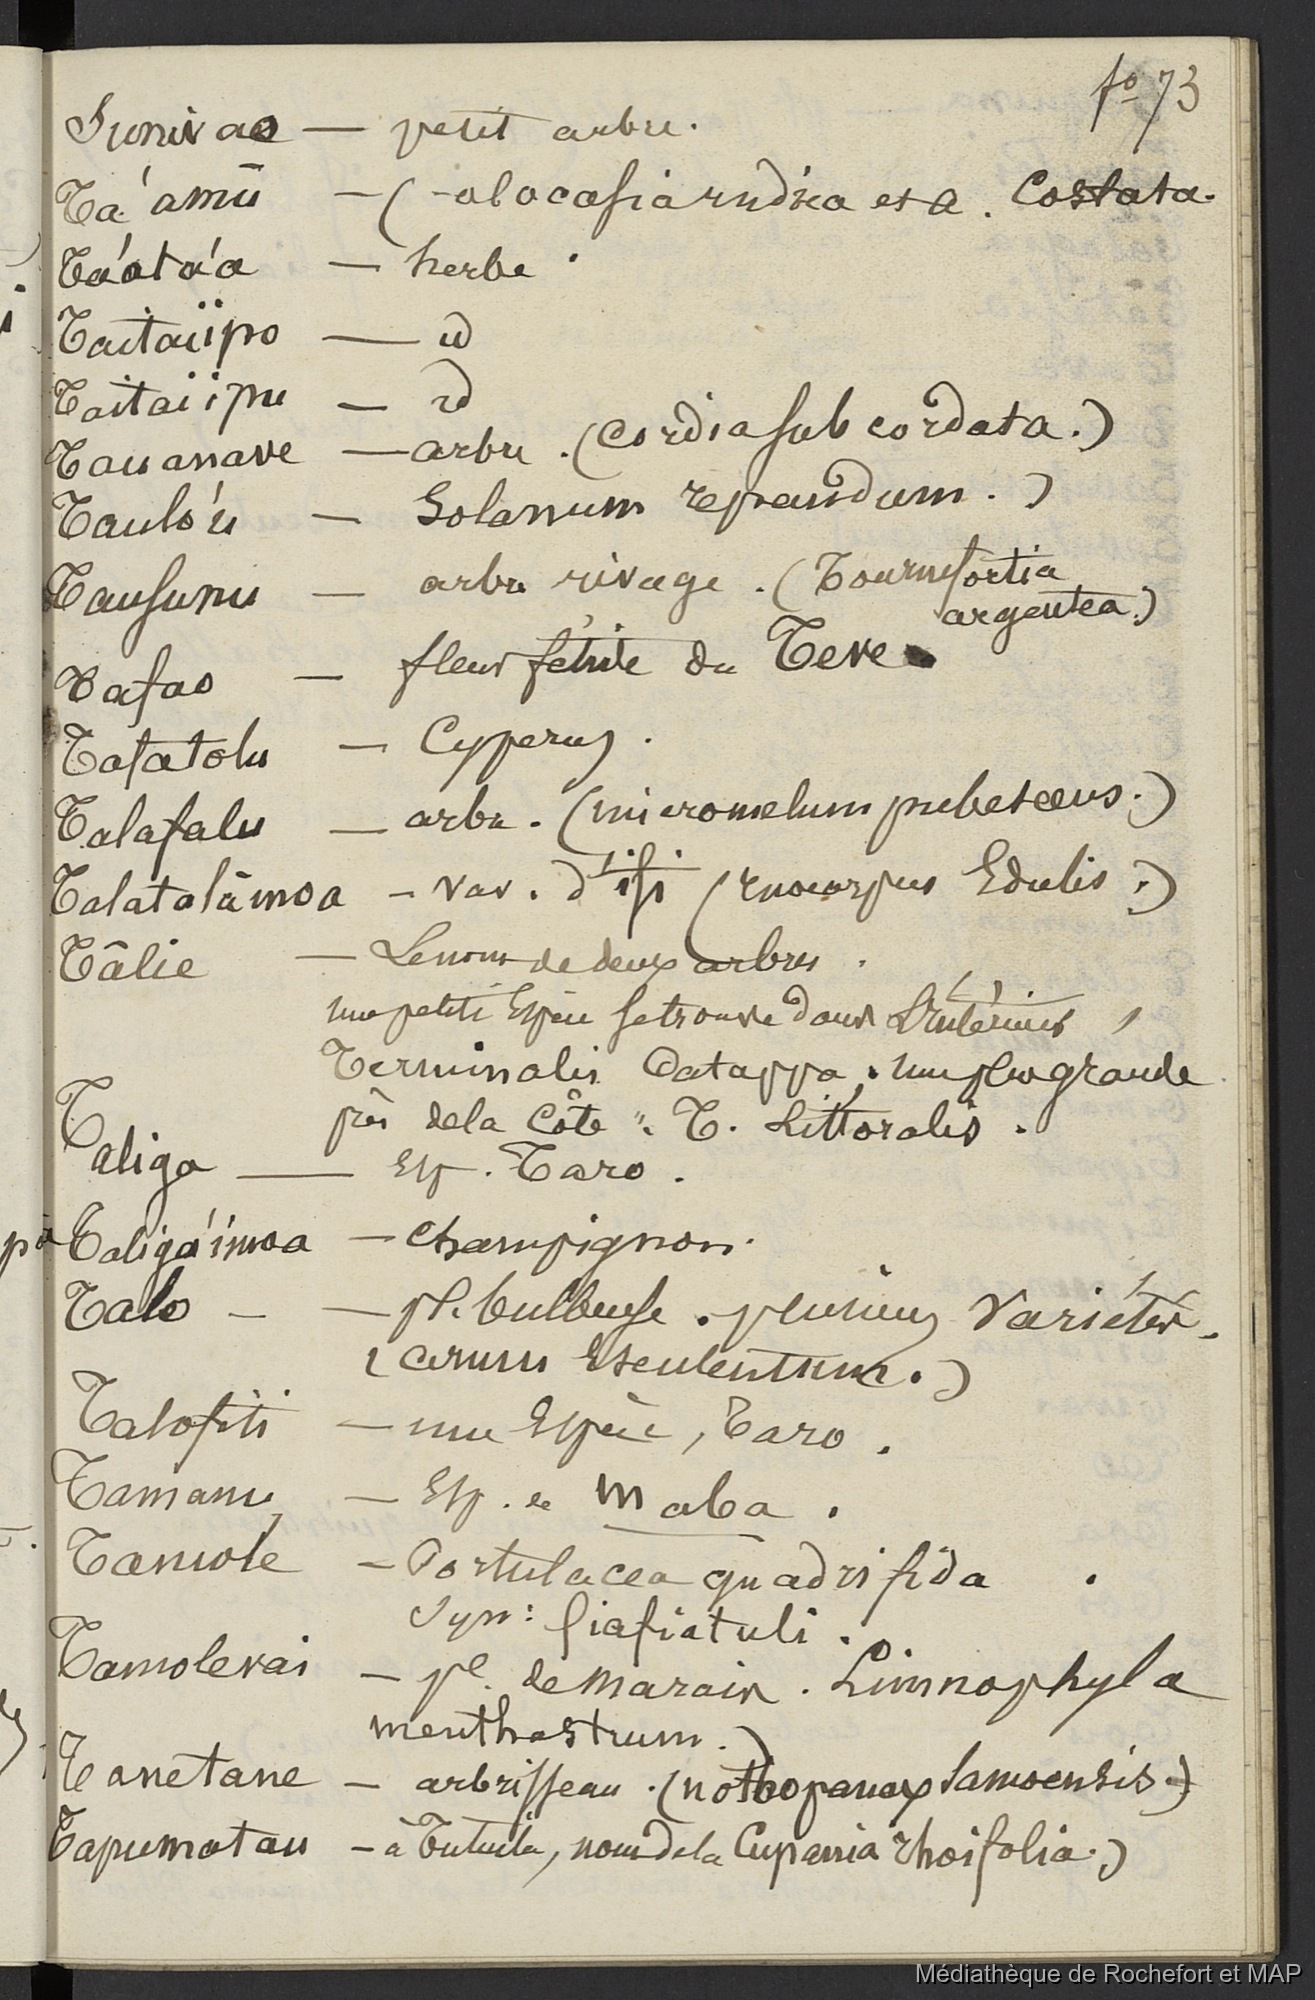 fo 73
Sunivao — petit arbre.
Ta'amū — (alocasia indica et a. Costata.
Ta'ata'a — herbe.
Taitaiipo — id
Taitaiipu — id
Tauanave — arbre. (Cordia subcordata.)
Taulo'u — Solanum repandum.)
Tausunu — arbre rivage. (Tournefortia
argentea.)
Tafao — fleur fétide du Teve
Tafatolu — Cyperus.
Talafalu — arbre. (micromelum pubescens.)
Talatalāmoa — var. d'ifi (Inocarpus Edulis.)
Tâlie — Le nom de deux arbres.
une petite Espèce se trouve dans L'Intérieur,
Terminalis Catappa, une plus grande
près de la Côte. T. Littoralis.
Taliga — Esp. Taro.
pā
Taliga'imoa — champignon.
Talo — pl. bulbeuse. plusieurs Variétés.
(arum Esculentum.)
Talofiti — une Espèce, Taro.
Tamanu, — Esp. de Maba.
Tamole — Portulacea quadrifida.
Syn: fiafiatuli.
Tamolevai — pl. de marais. Limnophyla
menthastrum.)
Tanetane — arbrisseau. (nothopanax Samoensis.)
Tapumatau — à Tutuila, nom de la Cupania rhoifolia.)
Médiathèque de Rochefort et MAP